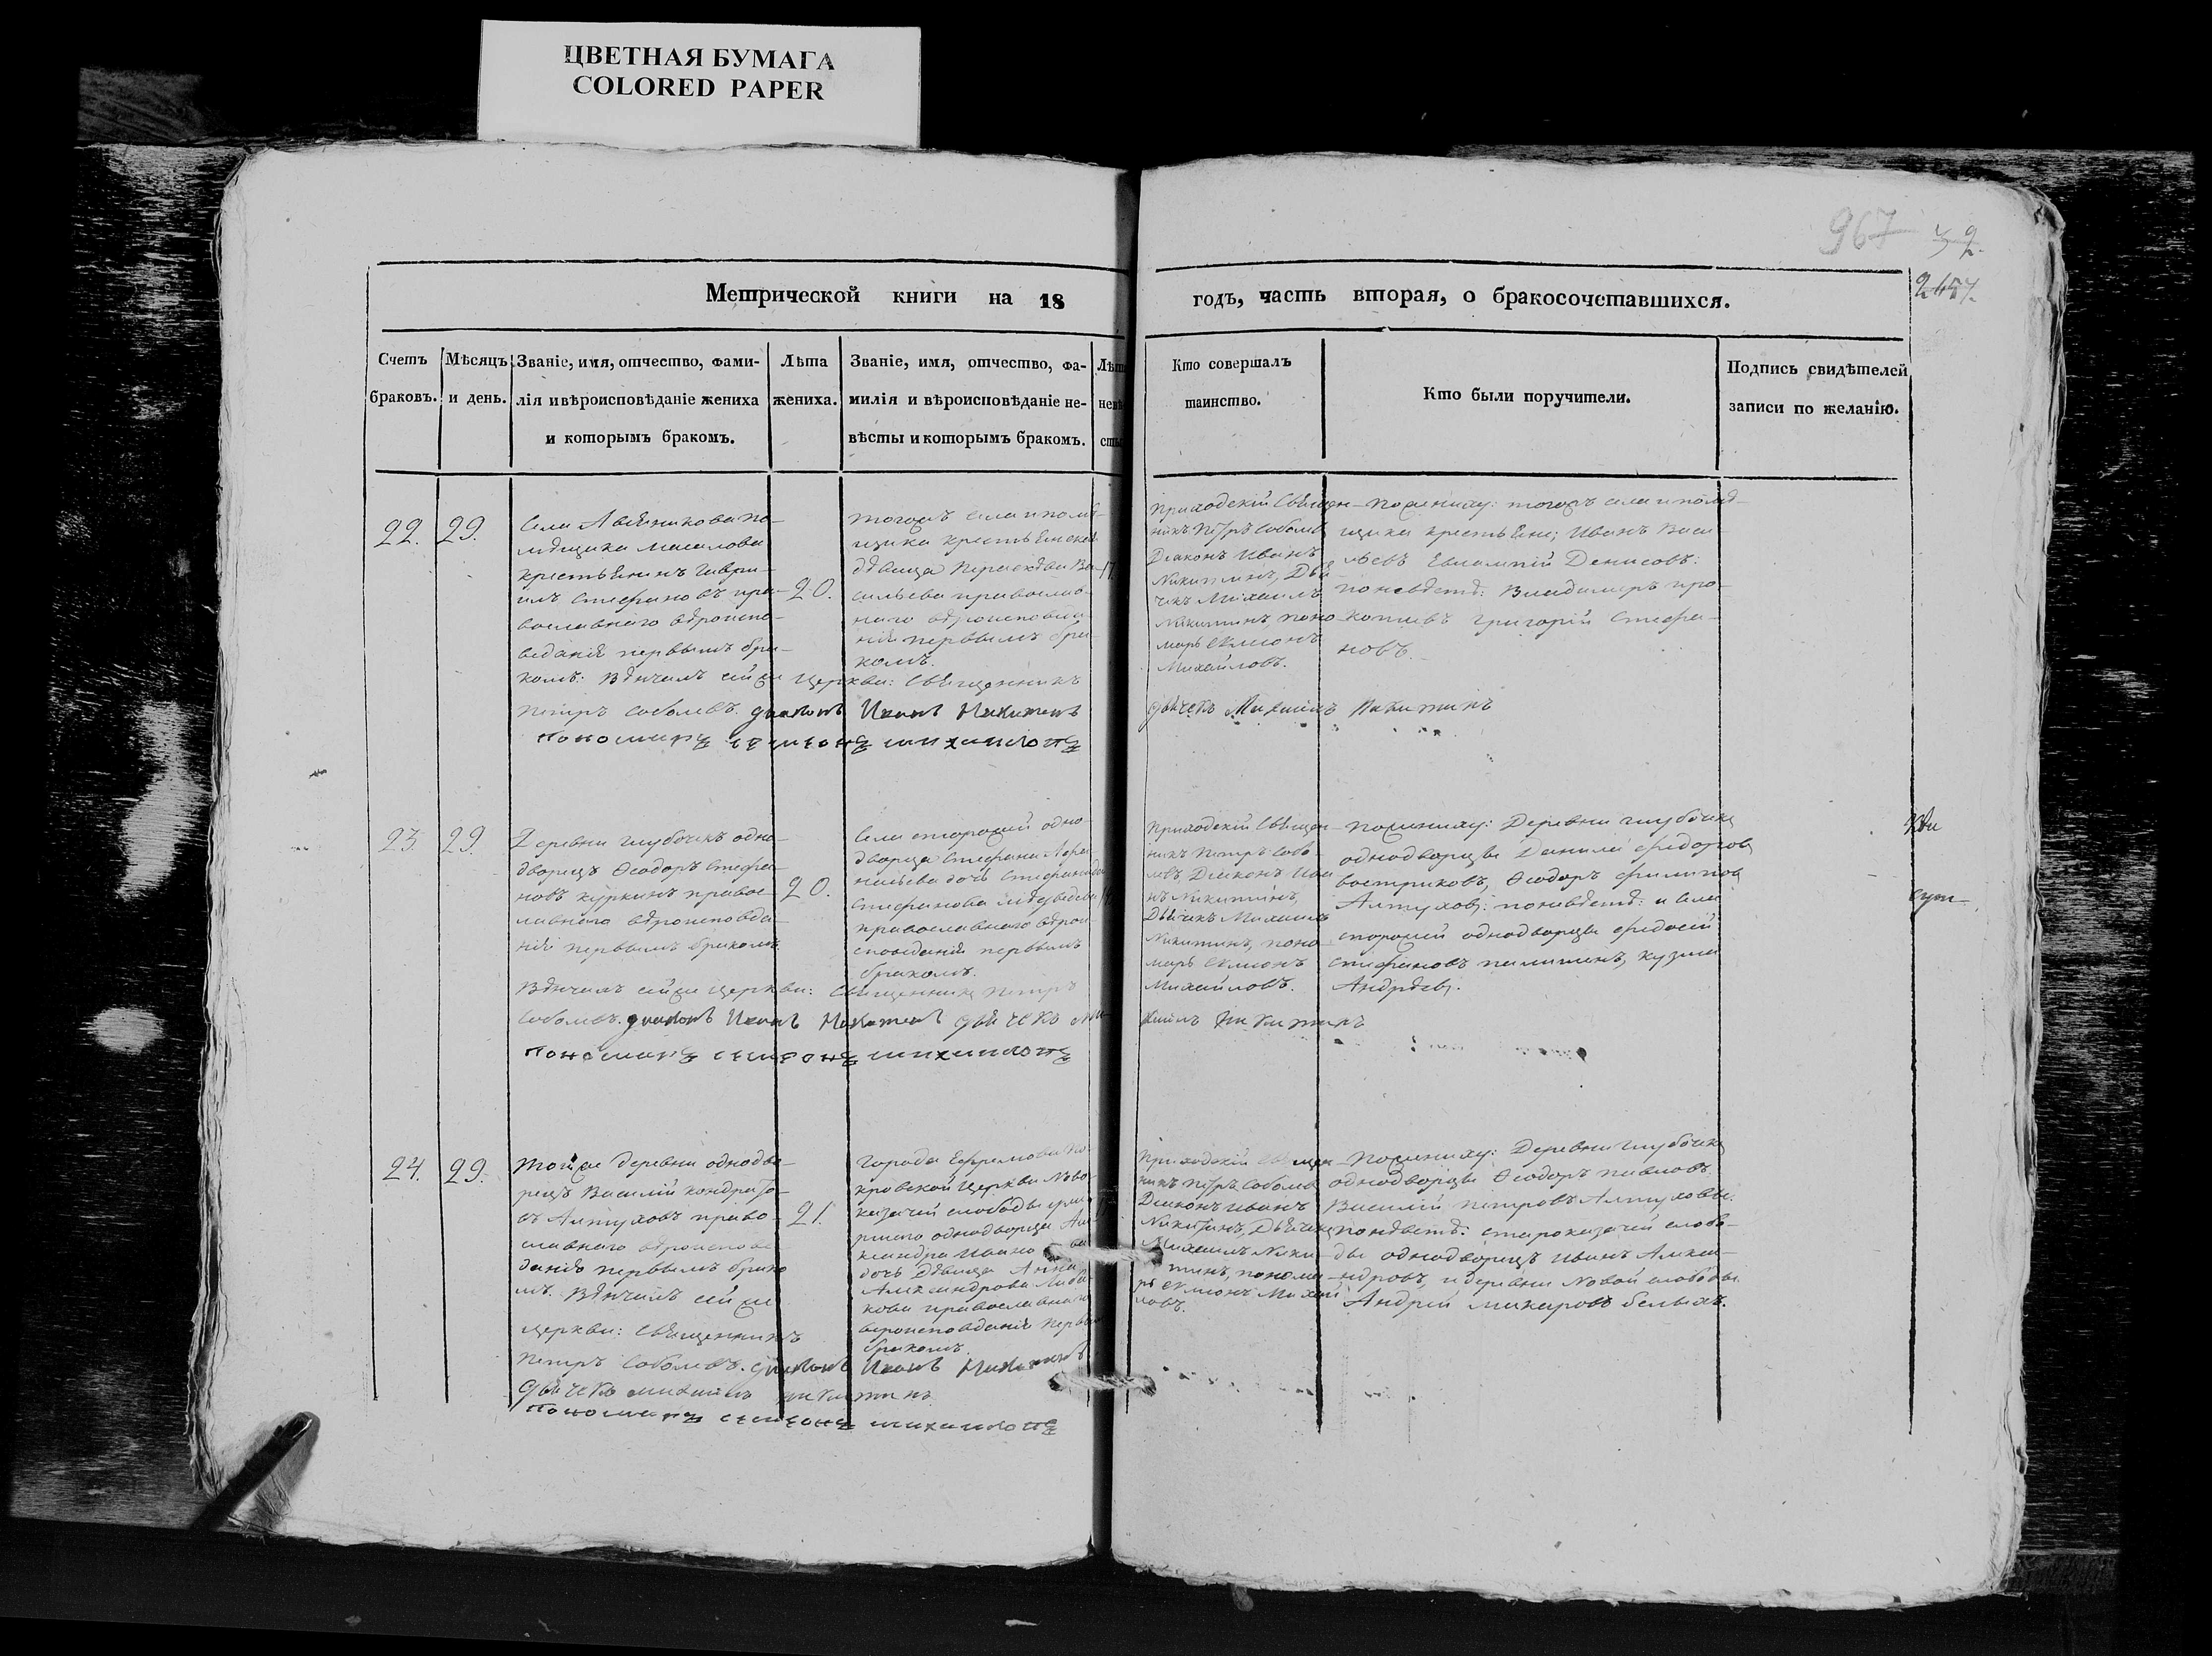 ЦВЕТНАЯ БУМАГА
COLORED PAPER
967 32.
2457.
Метрической книги на 18
годъ, часть вторая, о бракосочетавшихся.
Счетъ браковъ.
Мѣсяцъ и день.
Званіе, имя, отчество, фами-
лія и вѣроисповѣданіе жениха
и которымъ бракомъ.
Лѣта
жениха.
Званіе, имя, отчество, фа-
милія и вѣроисповѣданіе не-
вѣсты и которымъ бракомъ.
Кто совершалъ
таинство.
Кто были поручители.
Подпись свидѣтелей
записи по желанію.
22. 29.
Села Авѣрникова по-
мѣщика
крестьянинъ Гаври-
илъ Стефановъ пра-
вославнаго вѣроиспо-
вѣданія первымъ бра-
комъ: Вѣнчалъ сей же церкви: Священникъ
Петръ Соболевъ. диаконъ Иванъ Никитинъ
пономарь семионъ михаиловъ
20.
тогожъ села и помѣ-
щика крестьянская
дѣвица Параскева Ва-
сильева православ-
наго вѣроисповѣда-
нія первымъ бра-
комъ.
17.
Приходскій Священ-
никъ Петръ Соболевъ
Диаконъ Иванъ
Никитинъ, Дья
чекъ Михаилъ
Никитинъ поно
марь Семионъ
Михайловъ.
дьячекъ Михаилъ Никитинъ
По жениху: тогожъ села и помѣ-
щика крестьяне; Иванъ Васи-
льевъ Евлампій Денисовъ:
по невѣстѣ: Владимиръ Про-
копиевъ Григорій Стефа-
новъ.
23. 29.
Деревни Глубочкъ одно-
дворецъ Ѳеодоръ Стефа-
новъ Куркинъ правос-
лавнаго вѣроисповѣда-
нія первымъ бракомъ
Вѣнчалъ сей же церкви: Священникъ Петръ
Соболевъ. диаконъ Иванъ Никитинъ дьячекъ ми-
пономарь семионъ михаиловъ
20.
Села сторожей одно-
дворца Стефана Афа-
насьева дочь Стефанида
Стефанова Медведева
православнаго вѣрои-
сповѣданія первымъ
бракомъ.
Приходскій Священ-
никъ Петръ Собо-
левъ, Диаконъ Ива
нъ Никитинъ,
Дьячекъ Михаилъ
Никитинъ, поно
марь Семионъ
Михайловъ.
хаилъ никитинъ
По жениху: Деревни глубочкъ
однодворцы Данила Федоровъ
Востриковъ, Ѳеодоръ Филиповъ
Алтуховъ: по невѣстѣ: и села
сторожей однодворцы Федосей
Стефановъ Палишинъ, Кузма
Андрѣевъ.
24. 29.
Той же деревни однодво-
рецъ Василій Кондрать
евъ Алтуховъ право-
славнаго вѣроисповѣ-
данія первымъ брако
мъ. Вѣнчалъ сей же
церкви: Священникъ
Петръ Соболевъ. диаконъ Иванъ Никитинъ
дьячекъ михаилъ никитинъ
пономарь семионъ михаиловъ
21.
Города Ефремова По-
кровской Церкви Ново-
казачей слободы
однодворца Але-
ксандра Ивано
дочь Дѣвица Анна
Александрова
православнаго
вероисповѣданія первымъ
бракомъ.
Приходскій Священ-
никъ Петръ Соболевъ
Диаконъ Иванъ
Никитинъ, Дьячекъ
Михаилъ Ники-
тинъ, понома-
рь Семионъ Михай
ловъ.
По жениху: Деревни глубочкъ
однодворцы Ѳеодоръ Павловъ
Василій Петровъ Алтуховы:
По невѣстѣ: староказачей слобо-
ды однодворецъ Иванъ Алекса-
ндровъ, и деревни Новой слободы
Андрей Макаровъ Белыхъ.